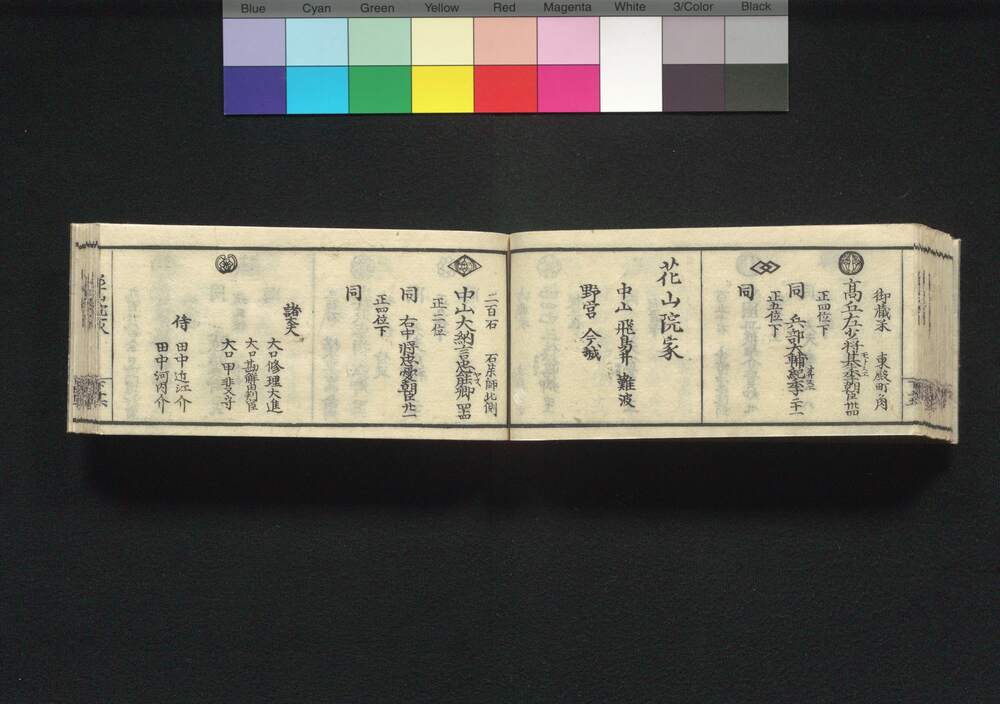 Blue Cyan Green Yellow Red Magenta White 3/Color Black
御蔵米 東殿町角
高丘左少将基季朝臣卅四
正四位下
同 兵部大輔紀季二十一
正五位下
同
花山院家
中山 飛鳥井 難波
野宮 今城
二百石 石薬師北側
中山大納言忠能卿
正二位
同 右中将忠愛朝臣廾一
正四位下
同
諸大夫
大口修理大進
大口甲斐守
侍 田中近江介
田中河内介